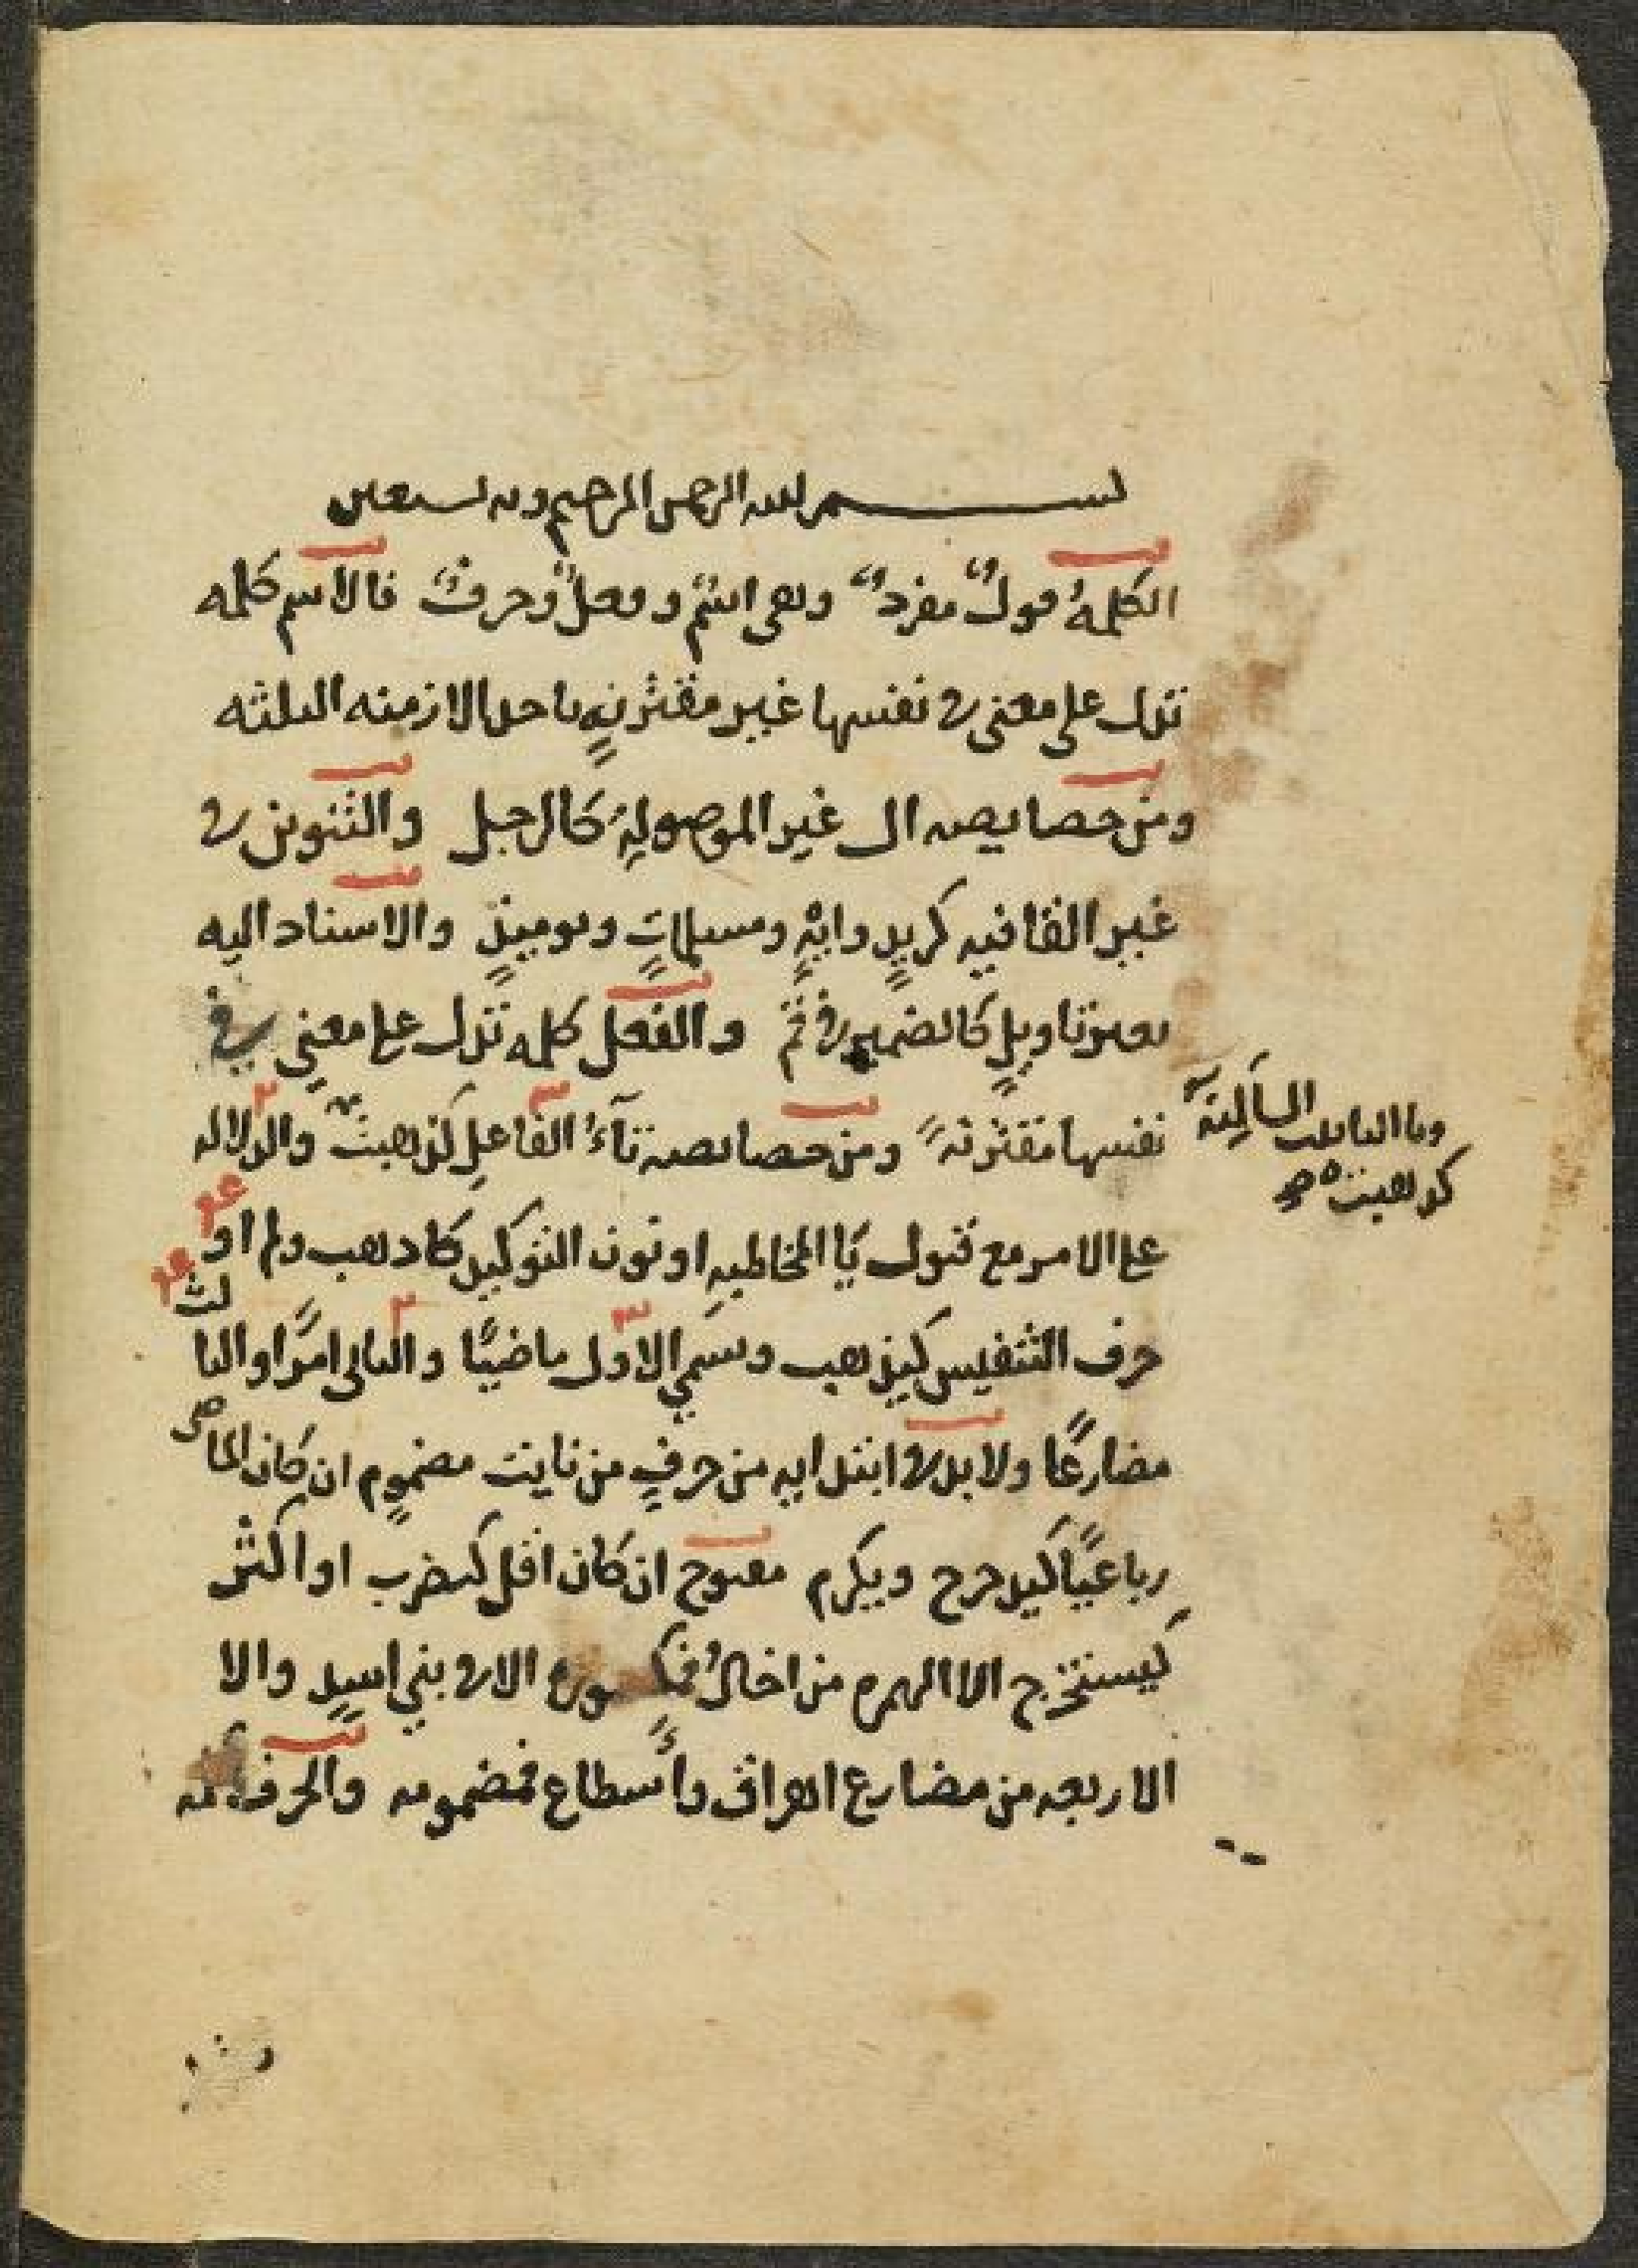 بسم الله الرحمن الرحيم وبه نستعين
الكلمةُ قولٌ مفردٌ وهي اسمٌ وفعلٌ وحرفٌ فالاسم كلمه
تدل على معنى في نفسها غير مقترنةٍ باحد الازمنه الثلثه
ومن خصايصه ال غير الموصولةِ كالرجل والتنوين في
غير القافيه كزيدٍ وايهٍ ومسلماتٍ ويوميذٍ والاسناد اليه
بدون تاويلٍ كالضمير في قمتُ والفعل كلمه تدل على معنى في
نفسها مقترنةً ومن خصايصه تآءُ الفاعلِ كذهبتُ والدلاله
وتا التانيث الساكنة
كذهبتْ صح
على الامر مع قبول يَا المخاطبهِ او نون التوكيد كاذهب ولم او
حرف التنفيس كيذهب وسمي الاول ماضيًا والثاني امرًا والثالث
مضارعًا ولا بد في ابتدايه من حرفٍ من نايت مضمومٍ ان كان الماضي
رباعيًا كيدحرج ويكرم مفتوح ان كان اقل كيضرب او اكثر
كيستخرج الا الهمزه من اخالُ فمكسوره الا في بني اسدٍ والا
الاربعه من مضارع اهراق واُسطاع فمضمومه والحرف